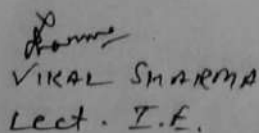 VIKAL SHARMA
Lect. I.E.